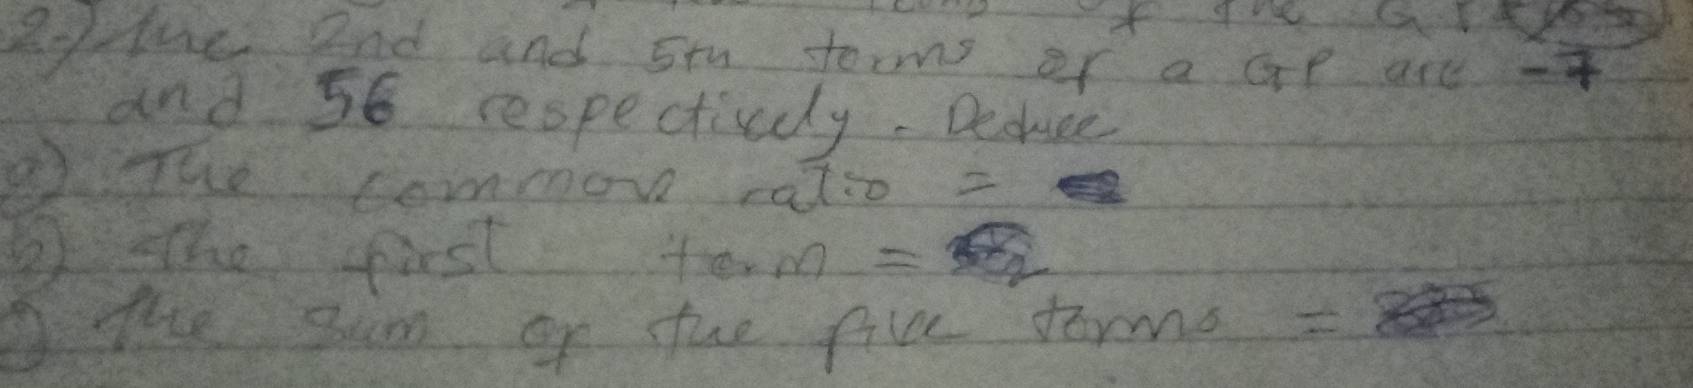 of the G P
2) The 2nd and 5th terms of a GP are -7
and 56 respectively. Deduce
a) The common ratio =
b) The first term =
c) The sum of the five terms =